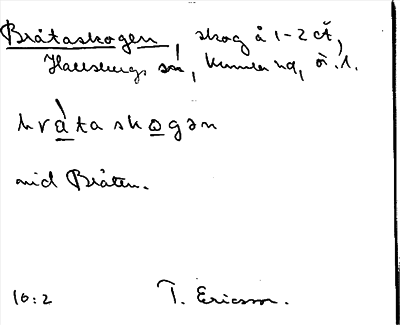 Bråtaskogen, skog å 1-2 ct,
Hallsbergs sn, Kumla hd, ör. l.
bråtaskogən
vid Bråten.
10:2 T. Ericsson.